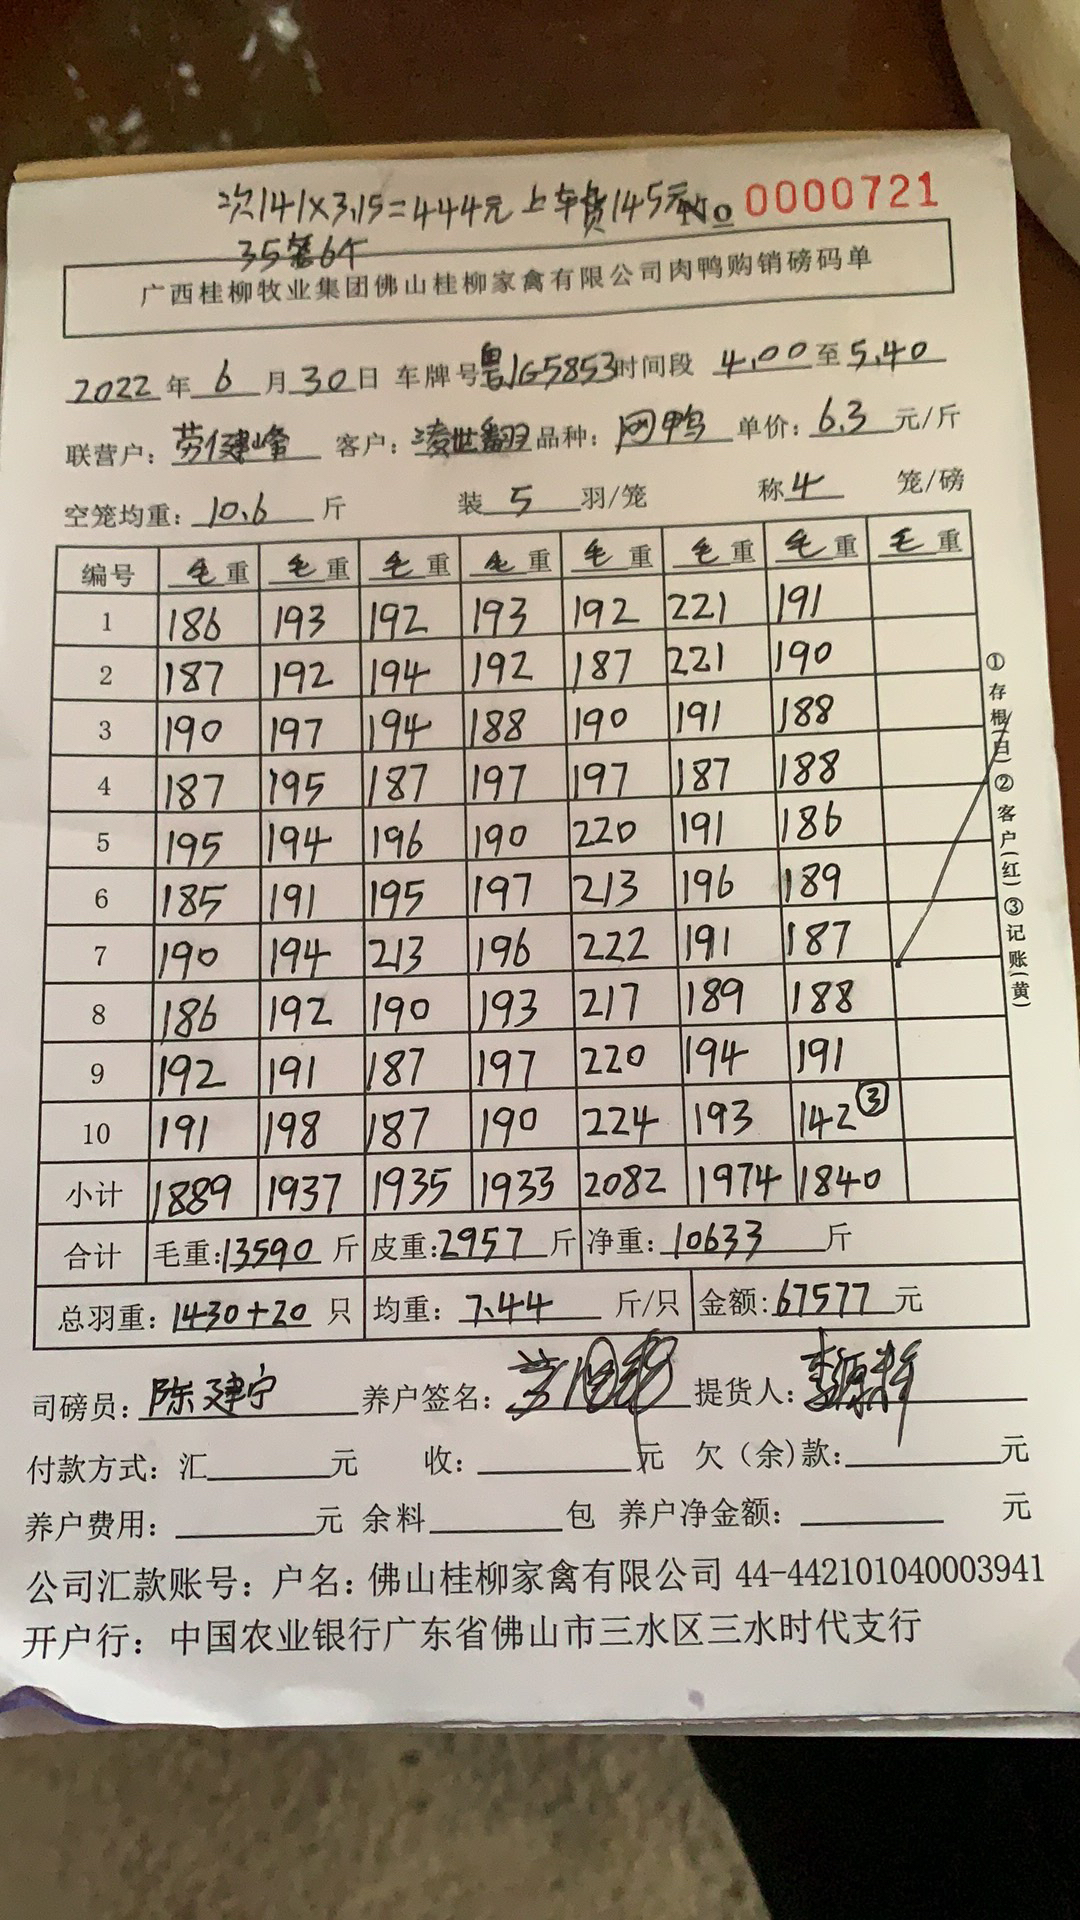 次141×3.15=444元 上车费145元 No 0000721
35笼6个
广西桂柳牧业集团佛山桂柳家禽有限公司肉鸭购销磅码单
2022年6月30日 车牌号粤JG5853时间段 4.00至5.40
联营户：劳健峰 客户：凌世翻 品种：网鸭 单价：6.3元/斤
空笼均重：10.6斤 装5羽/笼 称4笼/磅
编号 毛重 毛重 毛重 毛重 毛重 毛重 毛重 毛重
1 186 193 192 193 192 221 191
2 187 192 194 192 187 221 190
3 190 197 194 188 190 191 188
4 187 195 187 197 197 187 188
5 195 194 196 190 220 191 186
6 185 191 195 197 213 196 189
7 190 194 213 196 222 191 187
8 186 192 190 193 217 189 188
9 192 191 187 197 220 194 191
10 191 198 187 190 224 193 142③
小计 1889 1937 1935 1933 2082 1974 1840
合计 毛重:13590斤 皮重:2957斤 净重:10633斤
总羽重：1430+20只 均重：7.44斤/只 金额:67577元
司磅员：陈建宁 养户签名： 提货人：
付款方式：汇 元 收： 元 欠（余)款： 元
养户费用： 元 余料 包 养户净金额： 元
公司汇款账号：户名：佛山桂柳家禽有限公司 44-442101040003941
开户行：中国农业银行广东省佛山市三水区三水时代支行
①存根(白)②客户(红)③记账(黄)